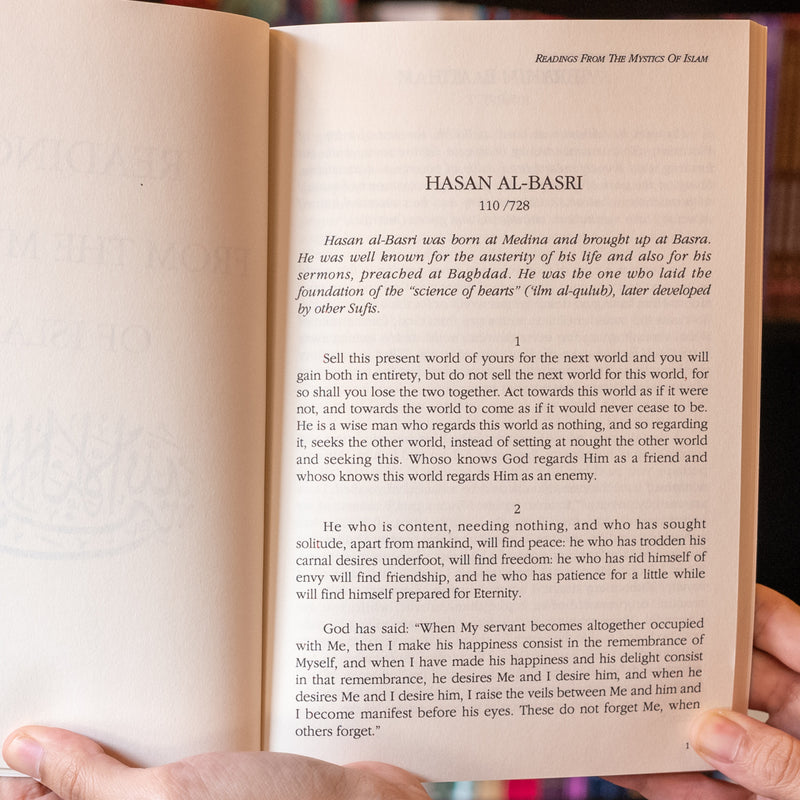 READINGS FROM THE MYSTICS OF ISLAM
HASAN AL-BASRI
110 /728
Hasan al-Basri was born at Medina and brought up at Basra.
He was well known for the austerity of his life and also for his
sermons, preached at Baghdad. He was the one who laid the
foundation of the “science of hearts” (‘ilm al-qulub), later developed
by other Sufis.
1
Sell this present world of yours for the next world and you will
gain both in entirety, but do not sell the next world for this world, for
so shall you lose the two together. Act towards this world as if it were
not, and towards the world to come as if it would never cease to be.
He is a wise man who regards this world as nothing, and so regarding
it, seeks the other world, instead of setting at nought the other world
and seeking this. Whoso knows God regards Him as a friend and
whoso knows this world regards Him as an enemy.
2
He who is content, needing nothing, and who has sought
solitude, apart from mankind, will find peace: he who has trodden his
carnal desires underfoot, will find freedom: he who has rid himself of
envy will find friendship, and he who has patience for a little while
will find himself prepared for Eternity.
God has said: “When My servant becomes altogether occupied
with Me, then I make his happiness consist in the remembrance of
Myself, and when I have made his happiness and his delight consist
in that remembrance, he desires Me and I desire him, and when he
desires Me and I desire him, I raise the veils between Me and him and
I become manifest before his eyes. These do not forget Me, when
others forget.”
1